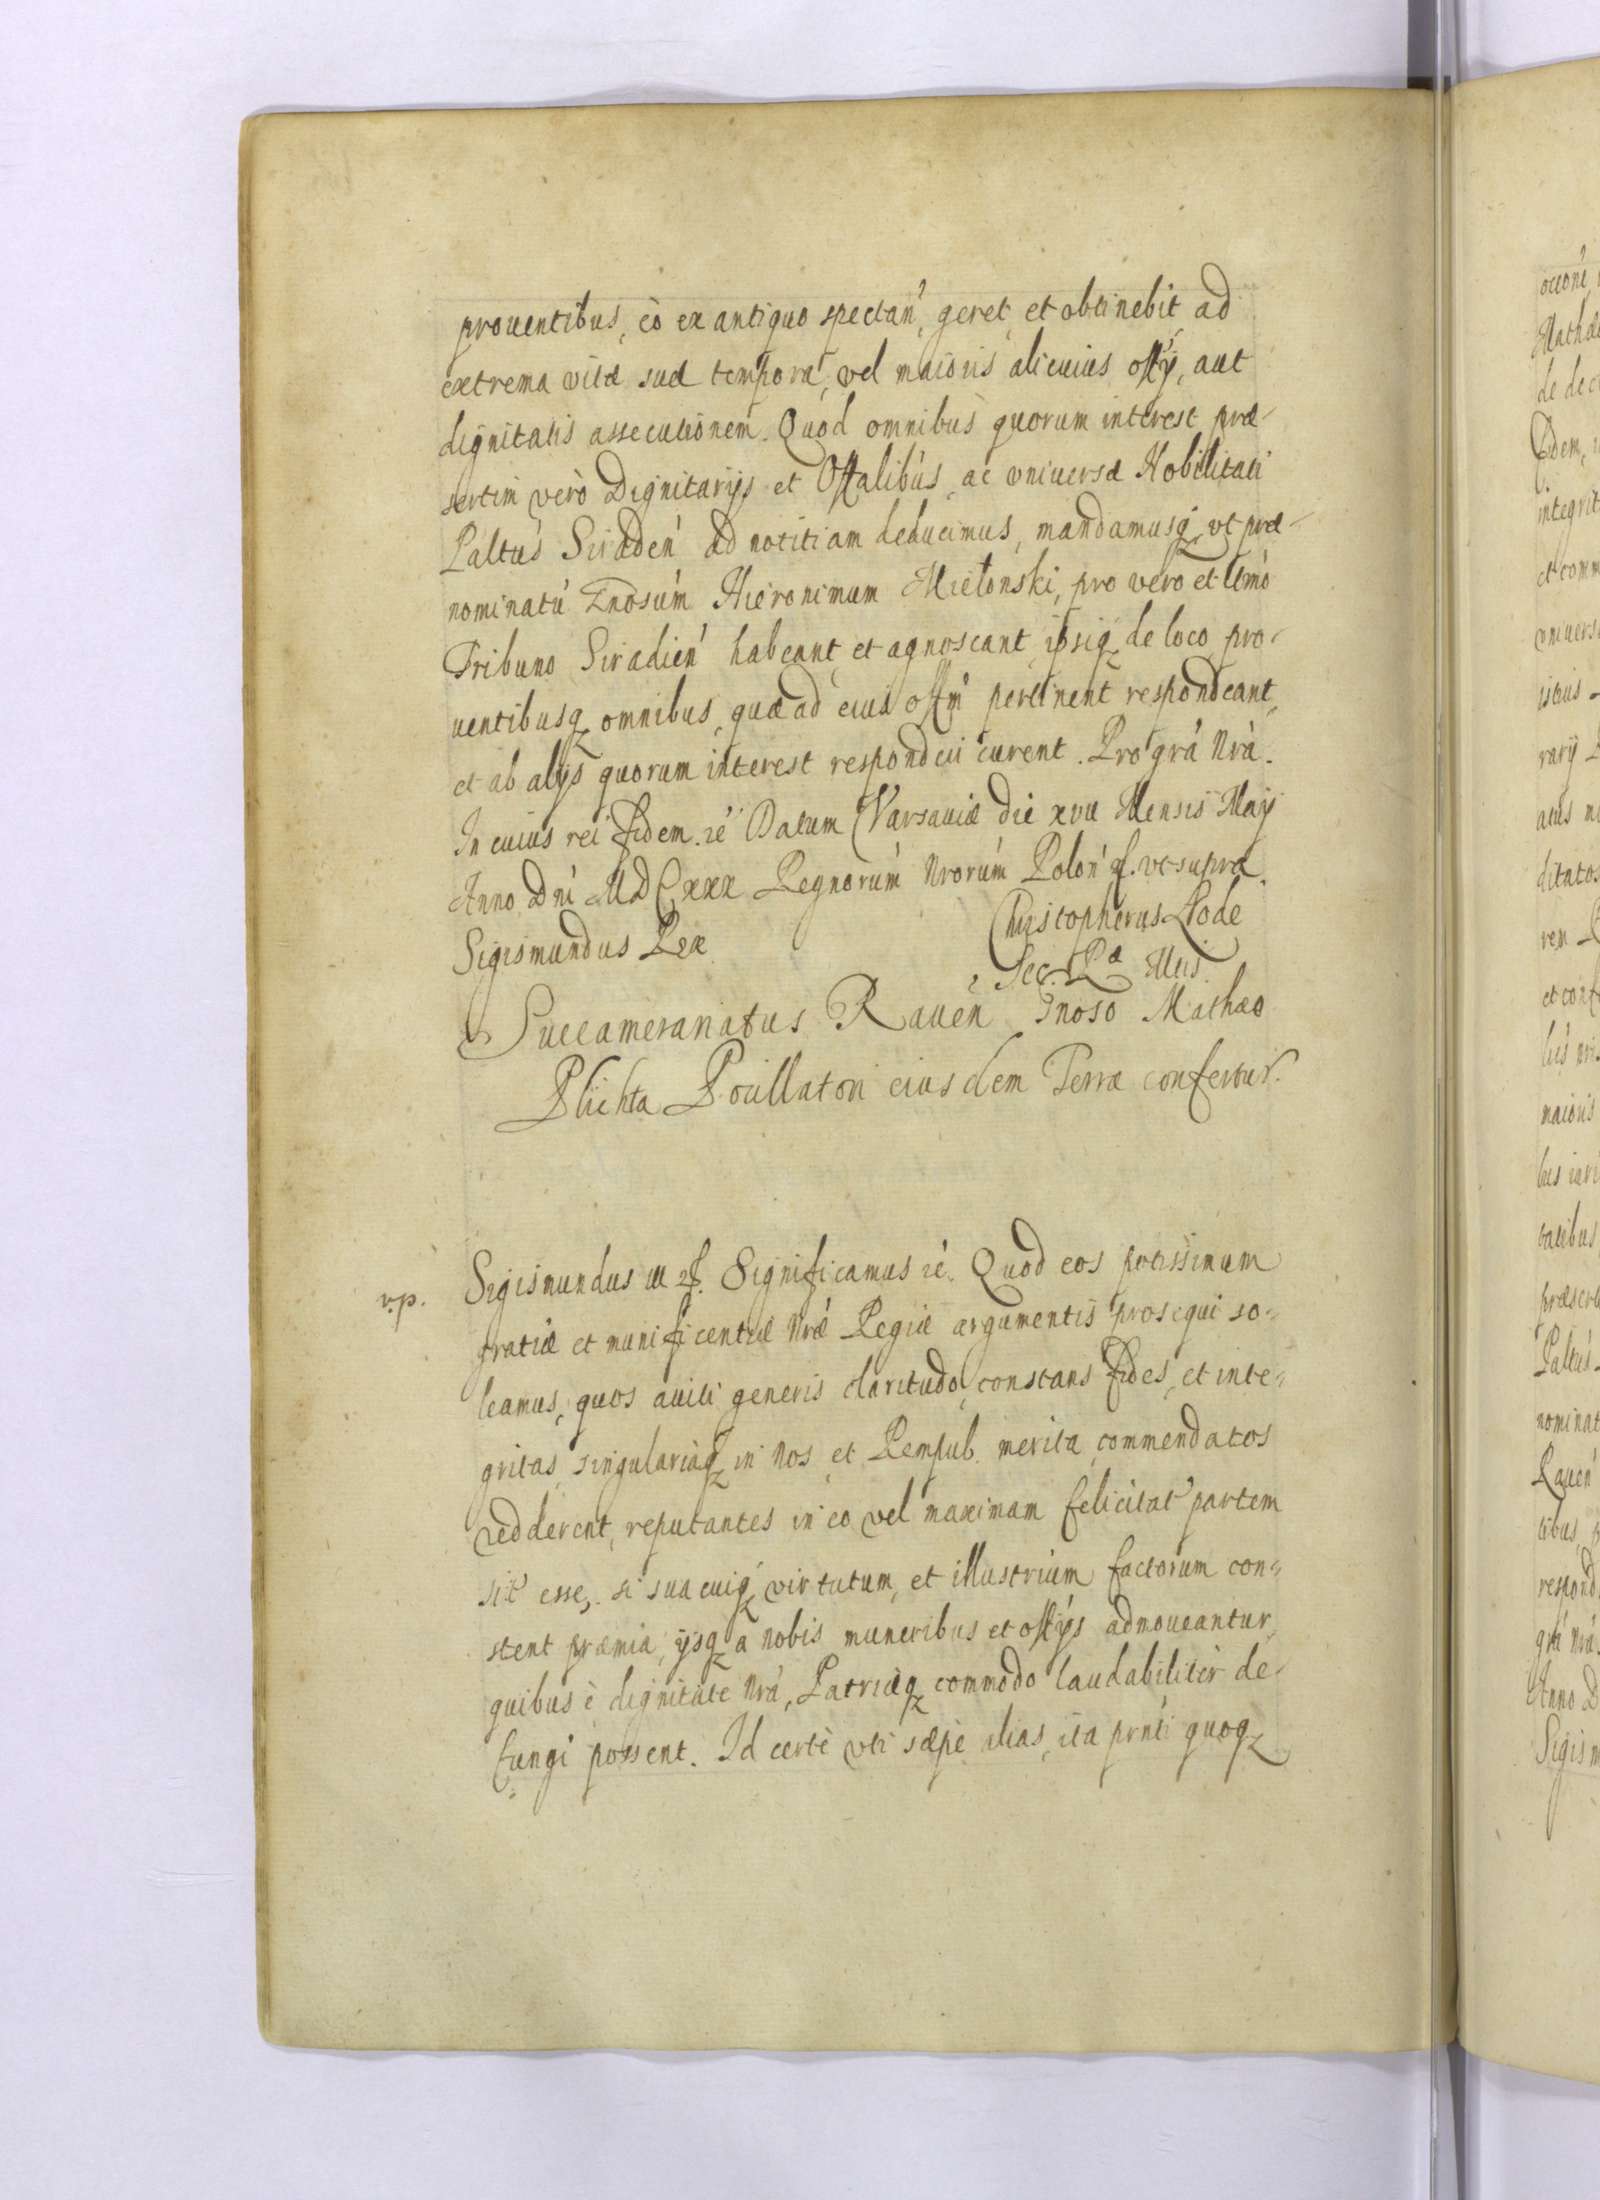 prouentibus, eò ex antiquo spectan', geret, et obtinebit ad
extrema vitæ suæ tempora, vel maioris alicuius offÿ, aut
dignitatis assecutionem. Quod omnibus quorum interest præ-
sertim verò Dignitarijs et Offalibus, ac vniuersæ Nobilitati
Paltus Siradeń ad notitiam deducimus, mandamusq, vt præ-
nominatú Gnosúm Hieronimum Mietonski, pro vero et Ltmò
Tribuno Siradień habeant, et agnoscant, ipsiq de loco, pro-
uentibusq omnibus, quæ ad eius offm pertinent respondeant,
et ab alijs quorum interest responderi curent. Pro grá Nrá.
In cuius rei fidem. ré Datum Varsauiæ die xvii Mensis Maij
Anno Dnì MDCxxx Regnorúm Nrorúm Polon' &. vt supra.
Sigismundus Rex Christopherus Lode
Sec. Ræ Mtis
Succameranatus Rauen̄ Gnoso Mathæo
Plichta Pocillatori eiusdem Terræ confertur.
v.p.
Sigismundus III &. Significamus ré. Quod eos potissimum
gratiæ et munificentiæ Nræ Regiæ argumentis prosequi so-
leamus, quos auiti generis claritudo, constans fides, et inte-
gritas, singulariaq in Nos et Rempub. merita commendatos
redderent, reputantes in eo vel maximam felicitat' partem
sit' esse, si sua cuiq, virtutum, et illustrium factorum con-
stent præmia, ijsq a nobis muneribus et offijs admoueantur,
quibus è dignitate Nrá, Patriæq commodo laudabiliter de-
fungi possent. Id certè vti sæpè alias, ita prnti quoq